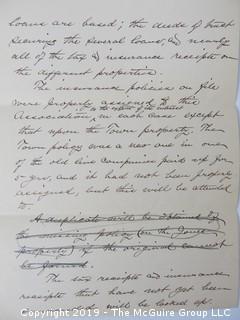 loans are based; the deeds of trust
securing the several loans, and nearly
all of the tax and insurance receipts on
the different properties.
The insurance policies on file
were properly assigned to this
to the extent of its interest
Association, in each case except
that upon the Town property. The
Town policy was a new one in one
of the old line companies paid up for
5 yrs, and it had not been properly
assigned, but this will be attended
to.
A duplicate will be obtained of
the missing policy (on the
property) if the original cannot
be found.
The tax receipts and insurance
receipts that have not yet been
will be looked up.
Copyright 2019 - The McGuire Group LLC